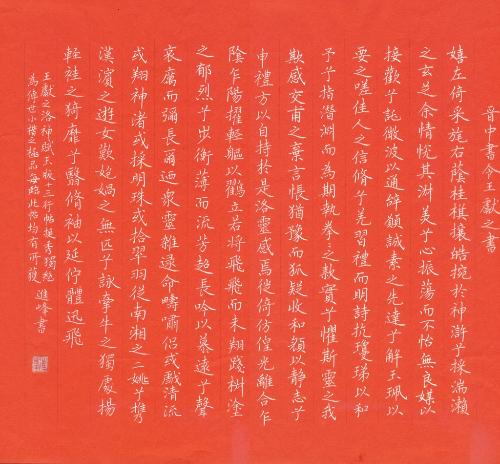 晋中書令王獻之書
嬉左倚采旄右蔭桂棋攘皓捥於神滸兮採湍瀨
之玄芝余情悅其淑美兮心振蕩而不怡無良媒以
接歡兮託微波以通辭願誠素之先達兮解玉珮以
要之嗟佳人之信脩兮羌習禮而明詩抗瓊珶以和
予兮指潛淵而為期執眷之款實兮懼斯靈之我
欺感交甫之棄言悵猶豫而狐疑收和顏以静志兮
申禮方以自持於是洛靈感焉徙倚彷徨光離合乍
陰乍陽擢輕軀以鶴立若將飛飛而未翔踐椒塗
之郁烈兮步衡薄而流芳超長吟以慕遠兮聲
哀厲而彌長爾迺衆靈雜遝命疇嘯侶或戲清流
或翔神渚或採明珠或拾翠羽從南湘之二姚兮携
漢濱之遊女歎匏媧之無匹兮詠牽牛之獨處揚
輕袿之猗靡兮翳脩袖以延佇體迅飛
王獻之洛神賦玉版十三行帖挺秀獨絶
為傳世小楷之極品每臨此帖均有所獲 進峰書